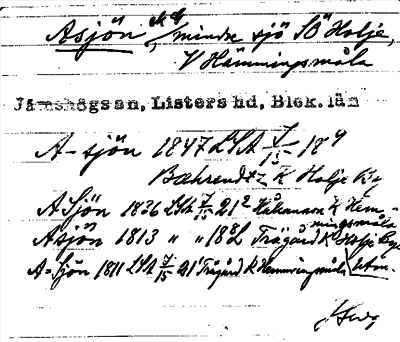 Asjön, mindre sjö SÖ Holje,
V Hämmingsmåla
Jämshögs sn, Listers hd, Blek. län
A-sjön 1847 LSA 7/15 18⁹
Bæhrendtz K Holje By
A Sjön 1836 LSA 7/15 21² Håkansson K Hem-
mingsmåla
Asjön 1813 " " 18⁸ Trägård K Holje By
A-Sjön 1811 LSA 7/15 21¹ Trägård K Hemmingsmåla